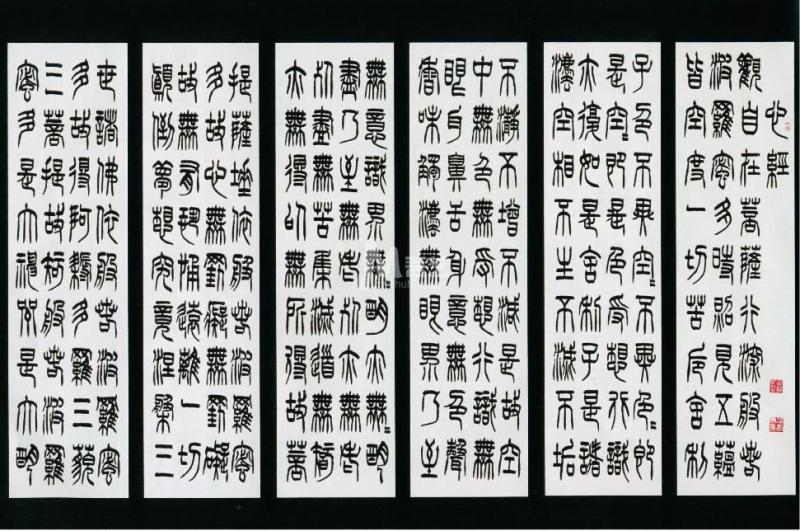 心經
觀自在菩薩行深般若
波羅蜜多時照見五蘊
皆空度一切苦厄舍利
子色不異空〻不異色〻即
是空〻即是色受想行識
亦復如是舍利子是諸
法空相不生不滅不垢
不淨不增不減是故空
中無色無受想行識無
眼耳鼻舌身意無色聲
香味觸法無眼界乃至
無意識界無〻明亦無〻明
盡乃至無老死亦無老
死盡無苦集滅道無智
亦無得以無所得故菩
提薩埵依般若波羅蜜
多故心無罣礙無罣礙
故無有恐怖遠離一切
顛倒夢想究竟涅槃三
世諸佛依般若波羅蜜
多故得阿耨多羅三藐
三菩提故知般若波羅
蜜多是大神咒是大明